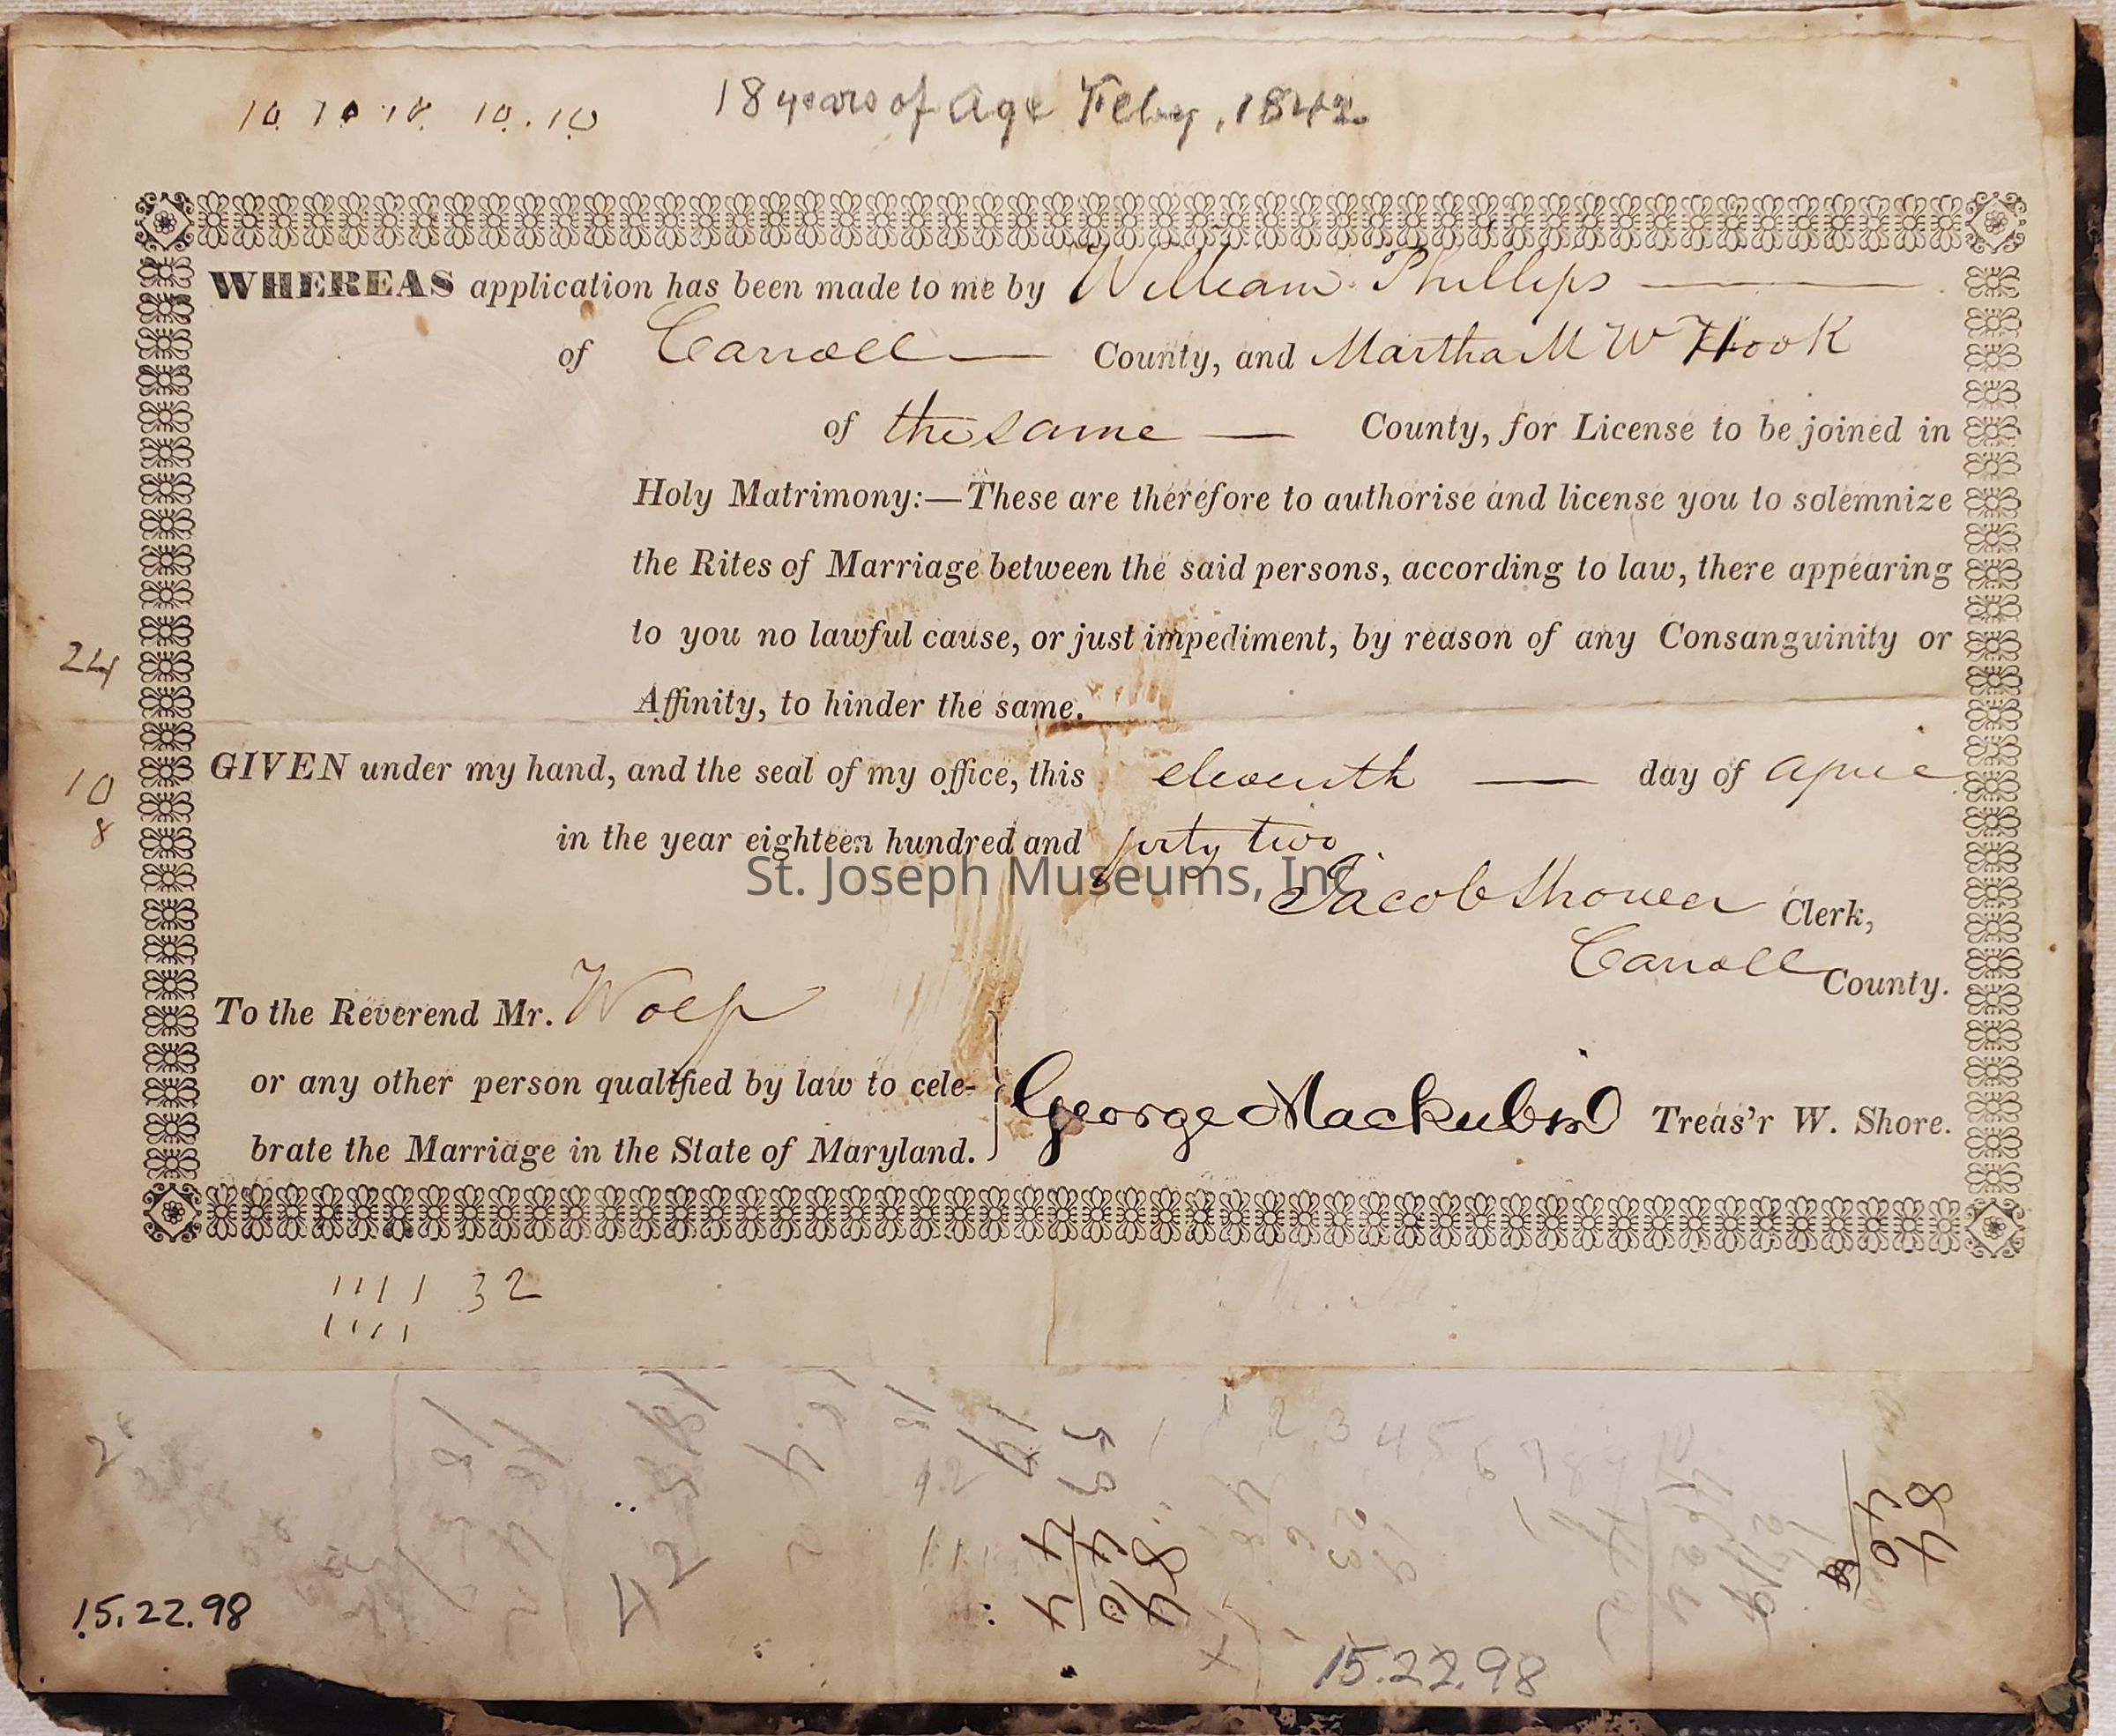 10 10 10 10.10
18 years of age Feby, 1842
WHEREAS application has been made to me by William Phillips
of Carroll County, and Martha M W Hook
of the same County, for License to be joined in
Holy Matrimony:—These are therefore to authorise and license you to solemnize
the Rites of Marriage between the said persons, according to law, there appearing
to you no lawful cause, or just impediment, by reason of any Consanguinity or
Affinity, to hinder the same.
24
GIVEN under my hand, and the seal of my office, this eleventh day of April
10
8
in the year eighteen hundred and forty two
St. Joseph Museums, Inc.
Jacob Shower Clerk,
Carroll County.
To the Reverend Mr. Wolf
or any other person qualified by law to cele-
brate the Marriage in the State of Maryland.
George Mackubin Treas'r W. Shore.
32
1 2 3 4 5 6 7 8 9
42
15.22.98
15.22.98